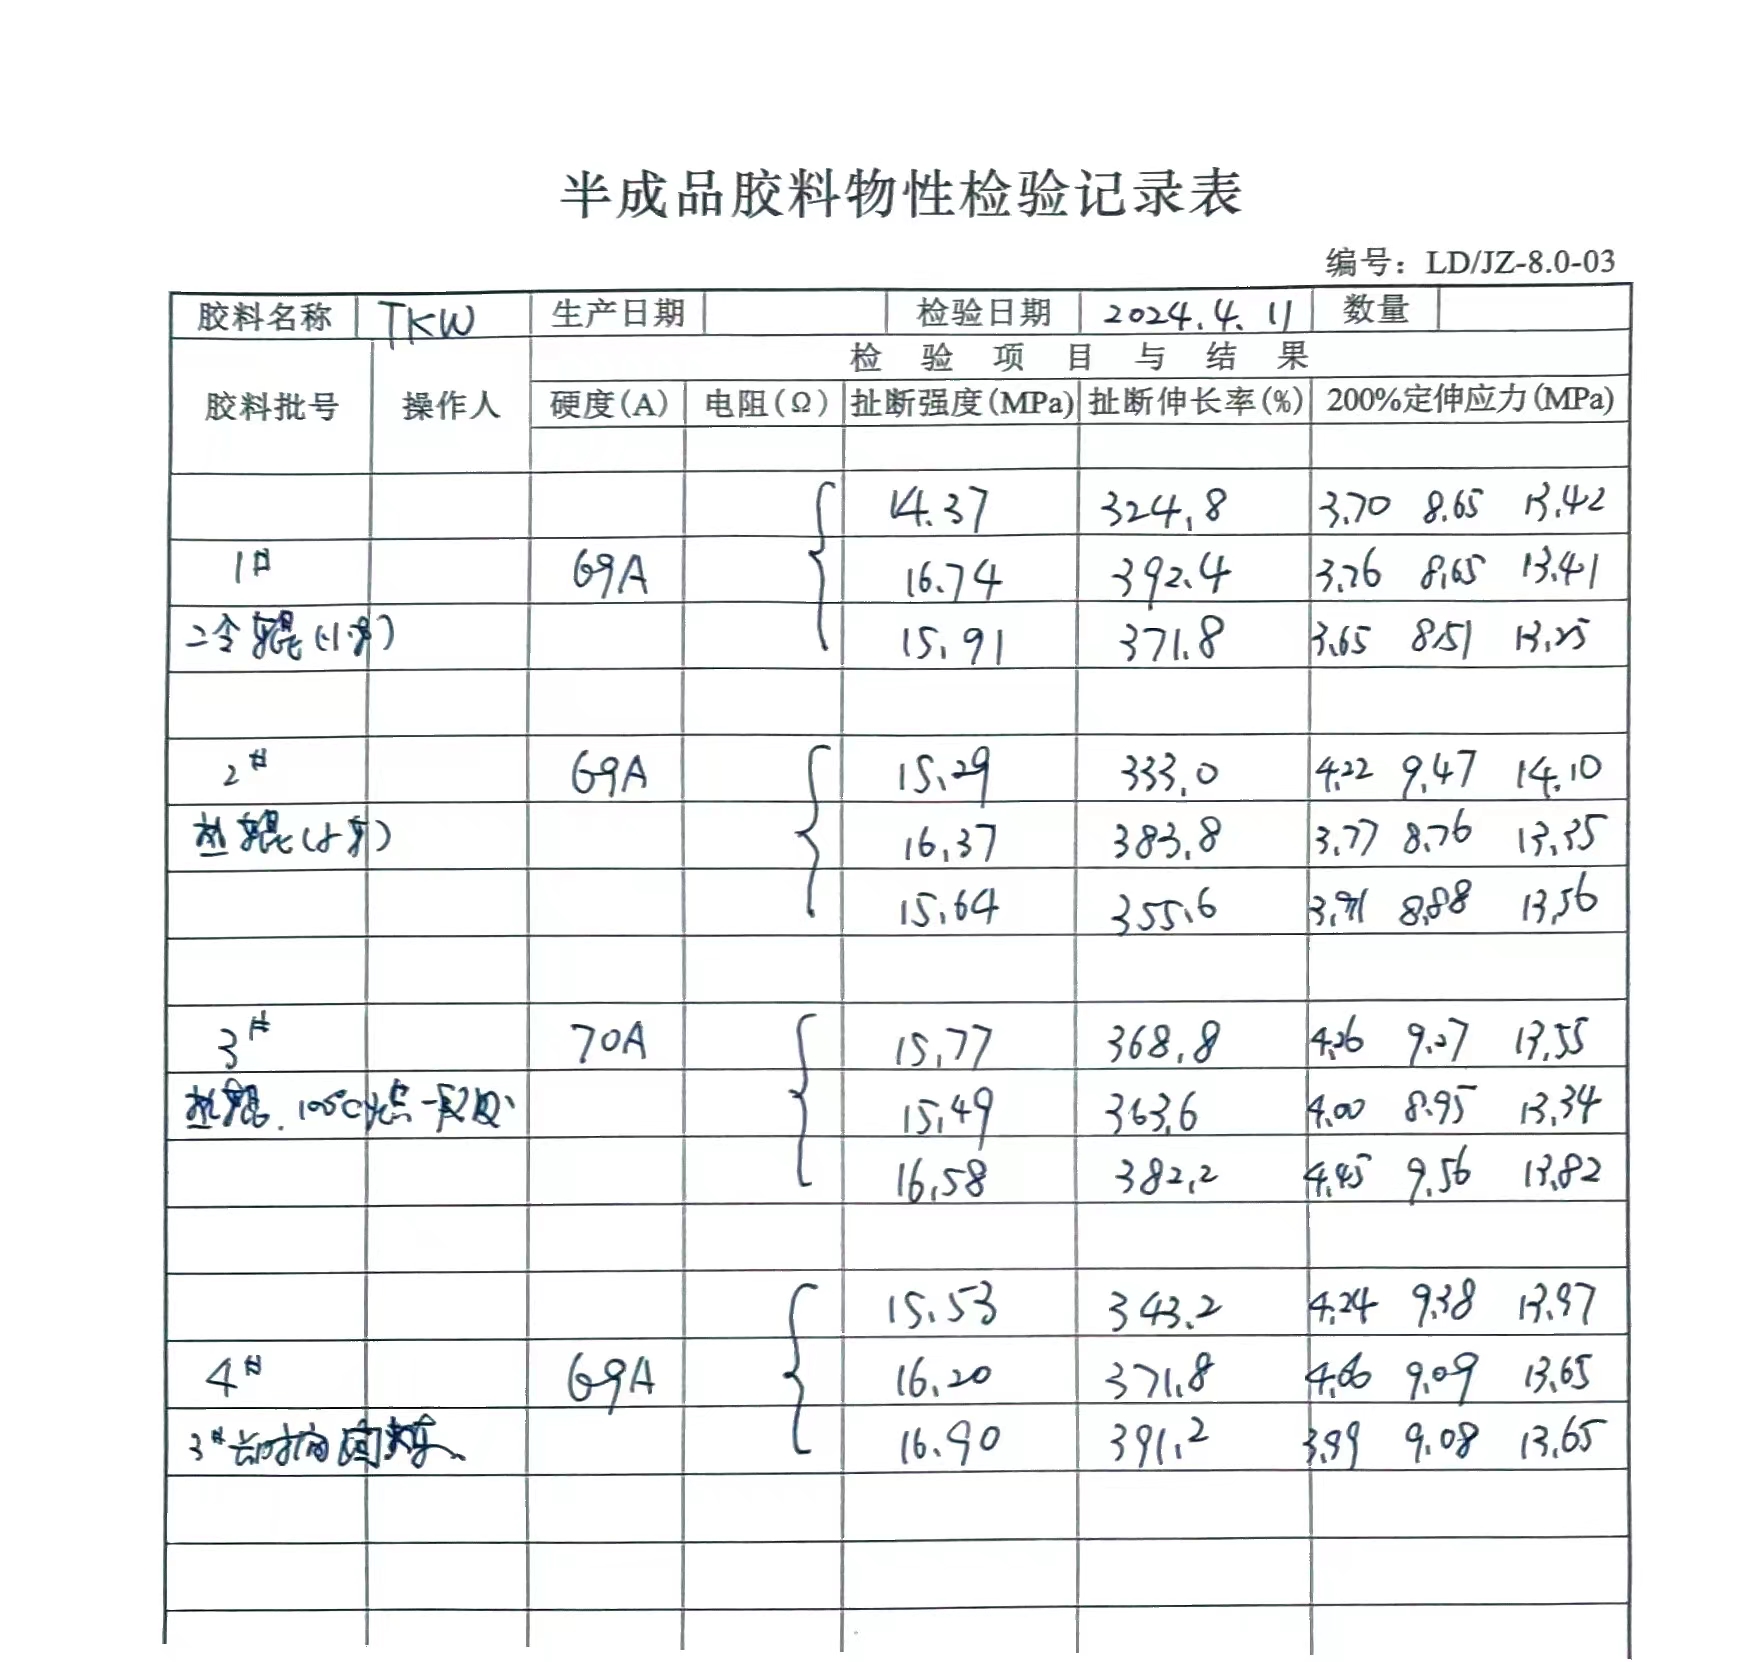 半成品胶料物性检验记录表
编号：LD/JZ-8.0-03
胶料名称 TKW 生产日期 检验日期 2024.4.11 数量
检 验 项 目 与 结 果
胶料批号 操作人 硬度(A) 电阻(Ω) 扯断强度(MPa) 扯断伸长率(%) 200%定伸应力(MPa)
14.37 324.8 3.70 8.65 13.42
1# 69A 16.74 392.4 3.76 8.65 13.41
15.91 371.8 3.65 8.51 13.25
2# 69A 15.29 333.0 4.22 9.47 14.10
16.37 383.8 3.77 8.76 13.35
15.64 355.6 8.88 13.56
3# 70A 15.77 368.8 4.26 9.27 13.55
15.49 363.6 4.00 8.95 13.34
16.58 382.2 4.45 9.56 13.82
15.53 343.2 4.24 9.38 13.97
4# 69A 16.20 371.8 9.09 13.65
3# 长时间 16.90 391.2 3.99 9.08 13.65